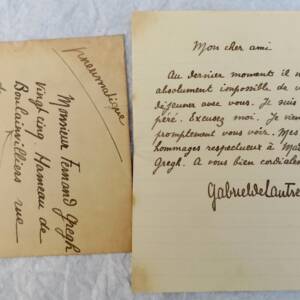 pneumatique
Monsieur Fernand Gregh
Vingt cinq, Hameau de
Boulainvilliers rue
de
Mon cher ami
Au dernier moment il
absolument impossible de
déjeuner avec vous. Je suis
péré. Excusez moi. Je
promptement vous voir. Mes
hommages respectueux à
Gregh. A vous bien
Gabriel de Lautre